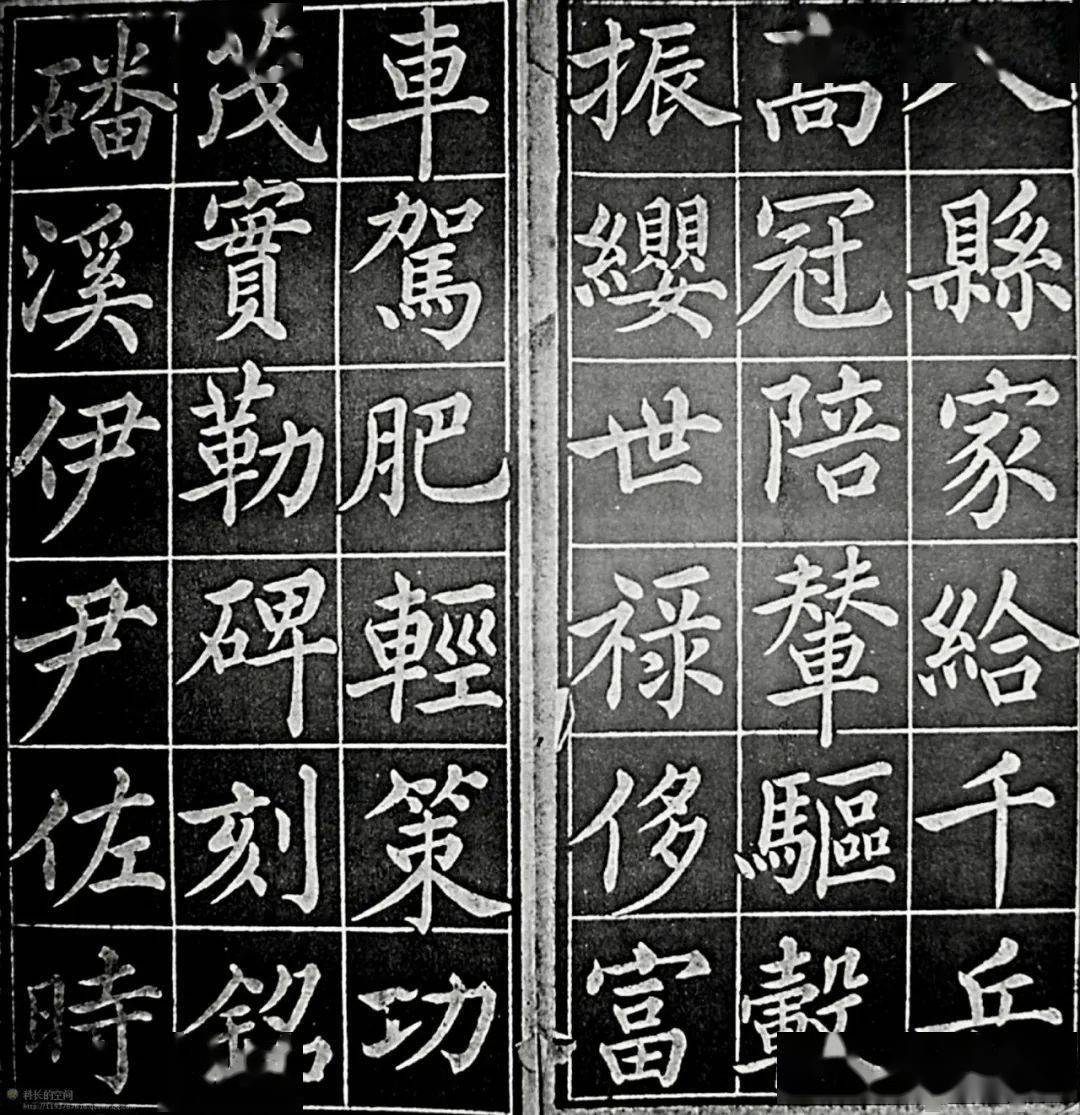 八縣家給千兵
高冠陪輦驅轂
振纓世禄侈富
車駕肥輕策功
茂實勒碑刻銘
磻溪伊尹佐時
科长的空间